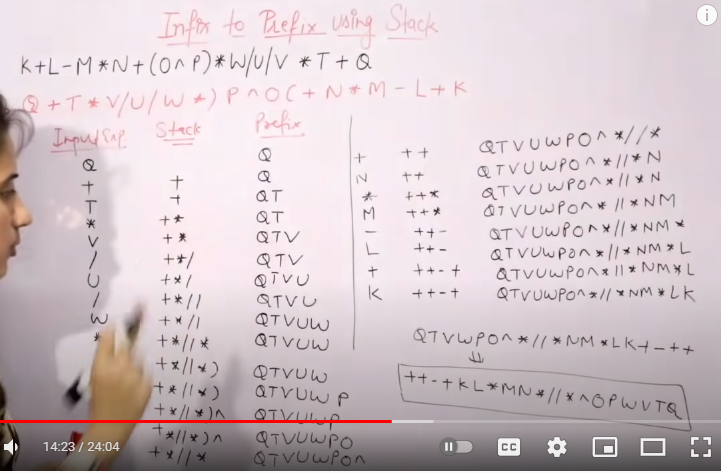 Infix to Prefix using Stack
K+L-M*N+(O^P)*W/U/V*T+Q
Q+T*V/U/W*)P^O(+N*M-L+K
Input Exp Stack Prefix
Q Q
+ + Q
T + QT
* +* QT
V +* QTV
/ +*/ QTV
U +*/ QTVU
/ +*// QTVU
W +*// QTVUW
* +*//* QTVUW
+*//*) QTVUW
+*//*) QTVUWP
+*//*)^ QTVUWP
+*//*)^ QTVUWPO
+*//* QTVUWPO^
+ ++ QTVUWPO^*//*
N ++ QTVUWPO^*//*N
* ++* QTVUWPO^*//*N
M ++* QTVUWPO^*//*NM
- ++- QTVUWPO^*//*NM*
L ++- QTVUWPO^*//*NM*L
+ ++-+ QTVUWPO^*//*NM*L
K ++-+ QTVUWPO^*//*NM*LK
QTVWPO^*//*NM*LK+-++
++-+KL*MN*//*^OPWVTQ
14:23 / 24:04
CC